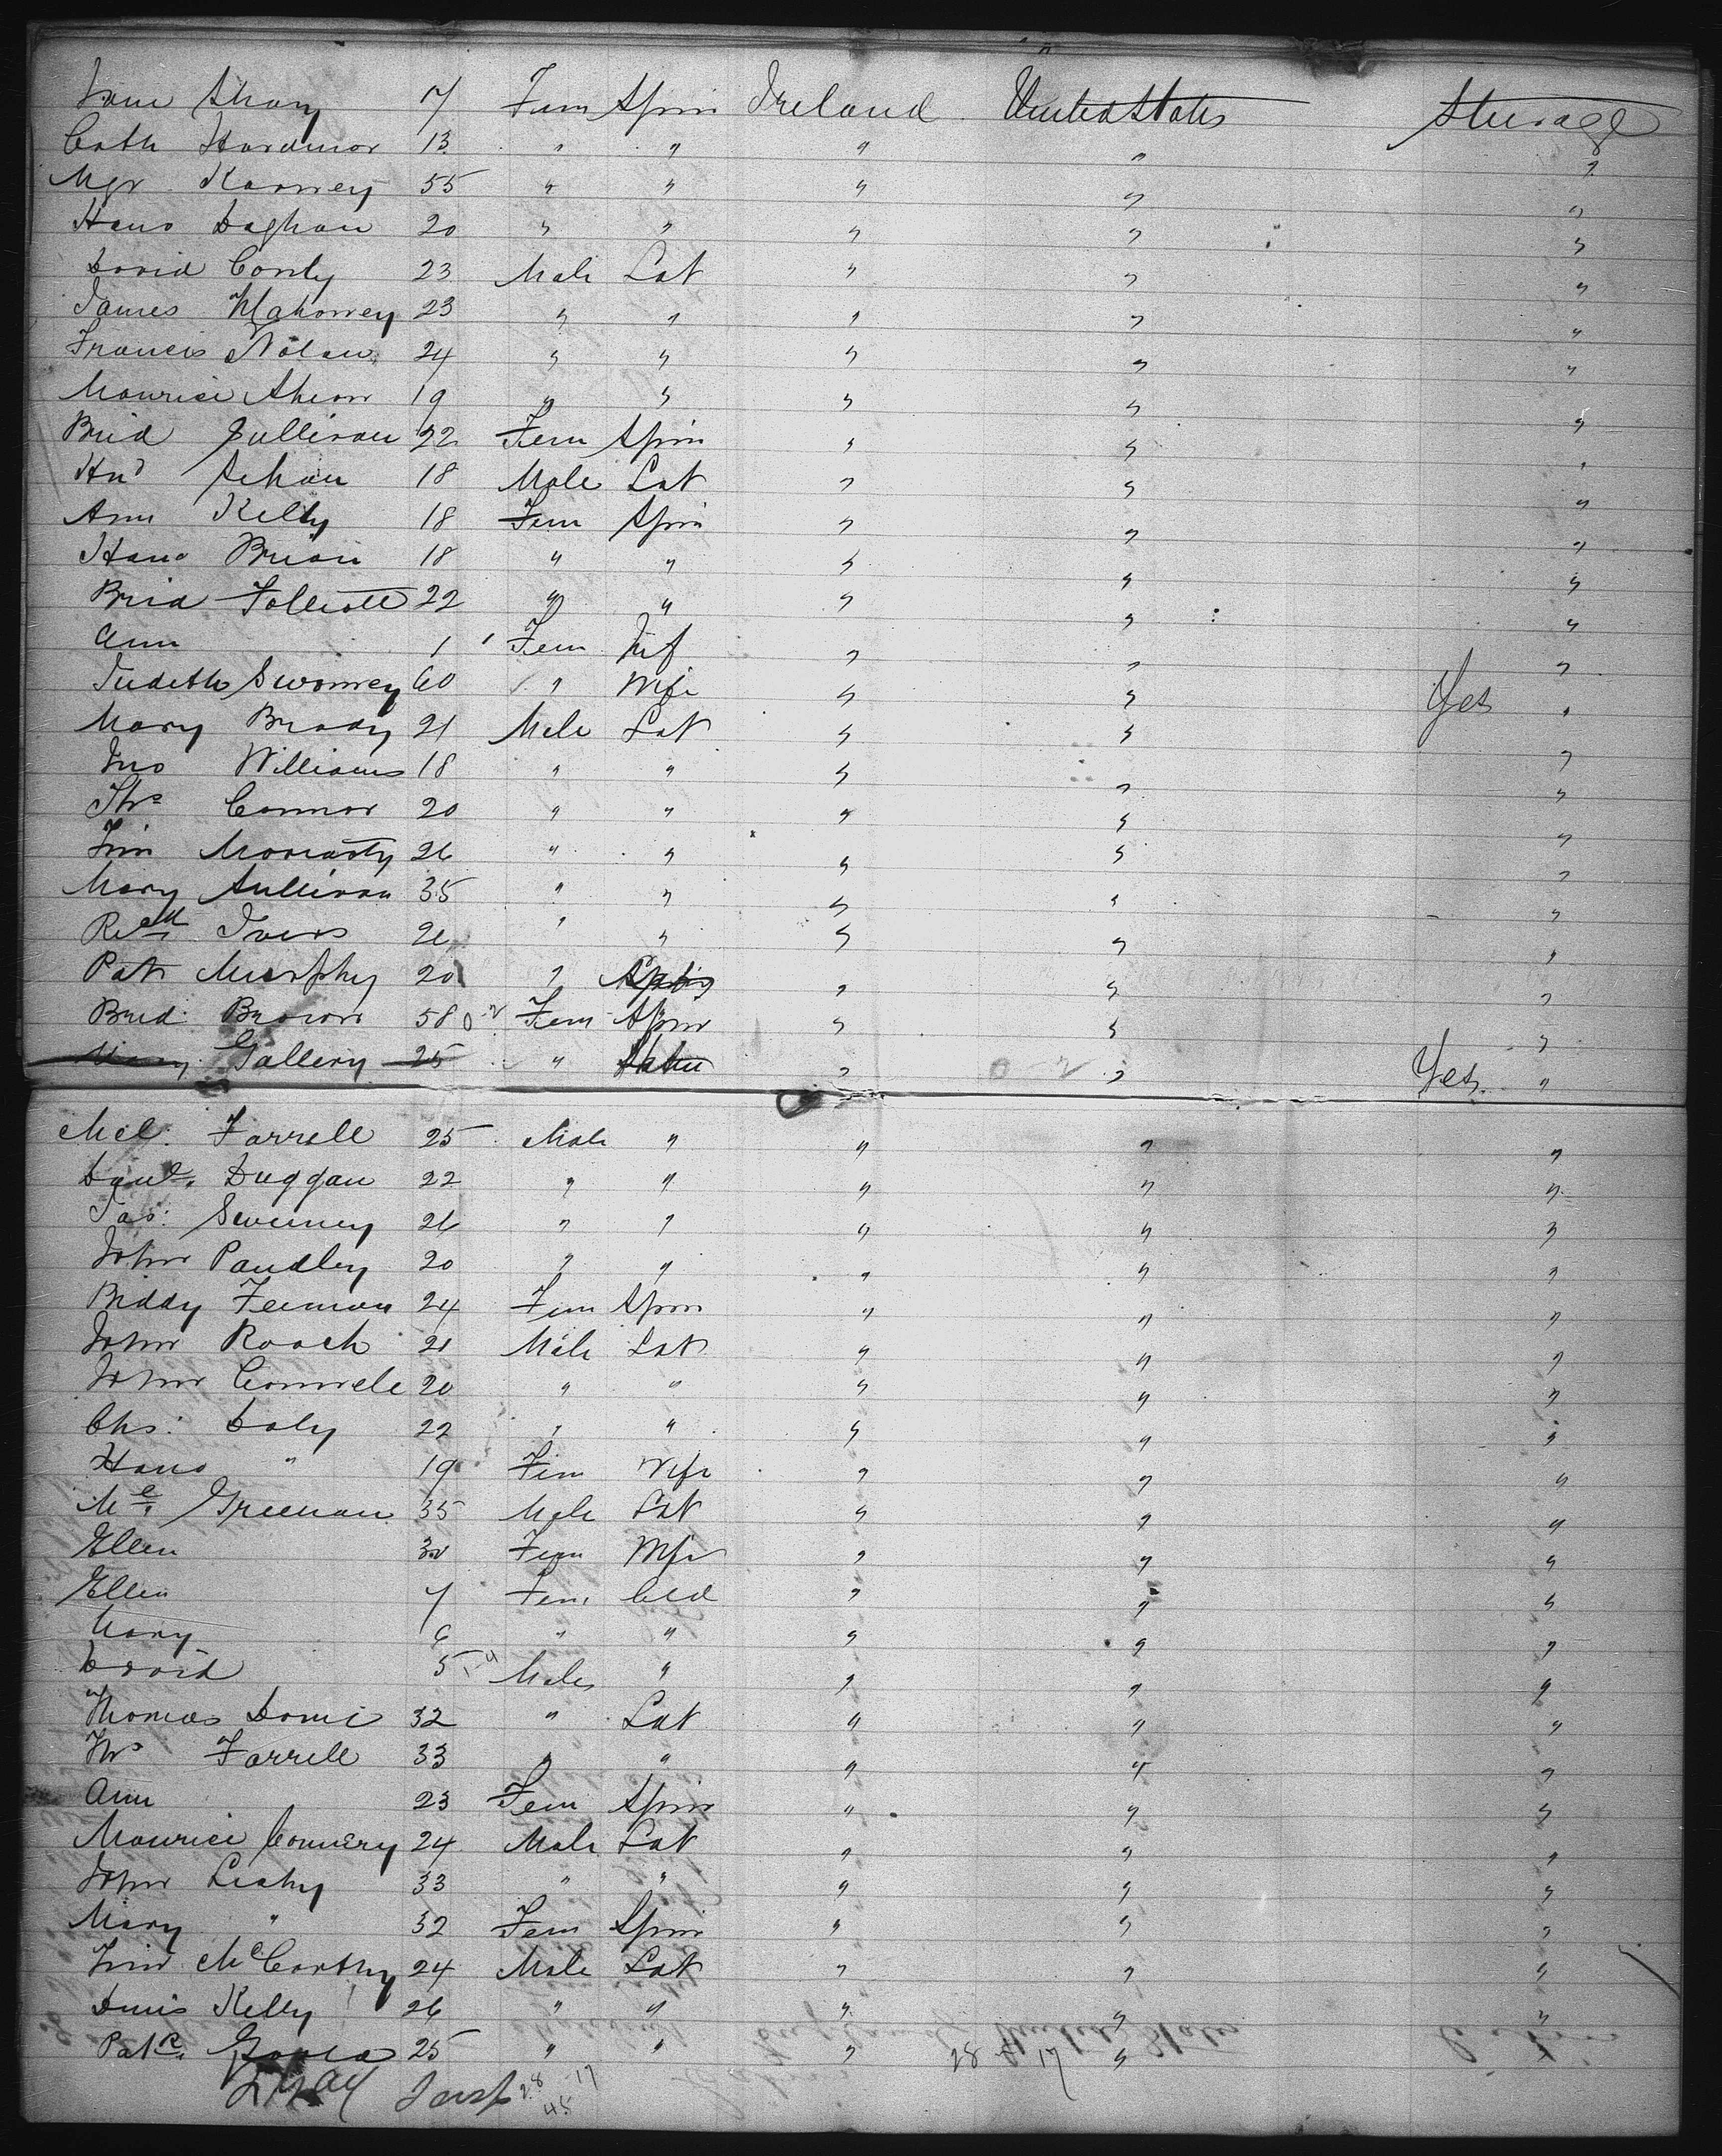 Jane Ahary 17 Fem Spin Ireland United States Steerage
Cath Haramor 13 " " " " "
Mgr Karney 55 " " " " "
Hano Daghan 20 " " " " "
David Conly 23 Male Lab " " "
James Mahoney 23 " " " " "
Francis Nolan 24 " " " " "
Maurice Ahern 19 " " " " "
Brid Sullivan 22 Fem Spin " " "
Hnd Sehan 18 Male Lab " " "
Ann Kelly 18 Fem Spin " " "
Hano Brian 18 " " " " "
Brid Folliott 22 " " " " "
Ann 1 Fem Inf " " "
Judeth Swoney 60 " Wife " " Yes "
Mary Brady 21 Male Lab " " "
Jno Williams 18 " " " " "
Thos Connor 20 " " " " "
Tim Moriarty 26 " " " " "
Mary Sullivan 35 " " " " "
Ivers " " " " "
Pat Murphy 20 " " " "
Brid Brown 58 Fem Spin " " "
Mary Gallery 25 " " " Yes "
Mcl. Farrell 25 Male " " " "
Danl. Duggan 22 " " " " "
Jas: Sweeney 26 " " " " "
John Pandley 20 " " " " "
Biddy Feenan 24 Fem Spin " " "
John Roach 21 Male Lab " " "
John Connele 20 " " " " "
Chs: Daly 22 " " " " "
Hano " 19 Fem Wife " " "
Greenan 35 Male Lab " " "
Ellen 30 Fem Wife " " "
Ellen 7 Fem Cld " " "
Mary 6 " " " " "
David 5 Male " " " "
Thomas Domi 32 " Lab " " "
Thos Farrell 33 " " " " "
Ann 23 Fem Spin " " "
Maurice Connery 24 Male Lab " " "
John Leahy 33 " " " " "
Mary " 32 Fem Spin " " "
Tim McCarthy 24 Male Lab " " "
Denis Kelly 26 " " " " "
Patk. 25 " " " " "
28 17
28 17
45